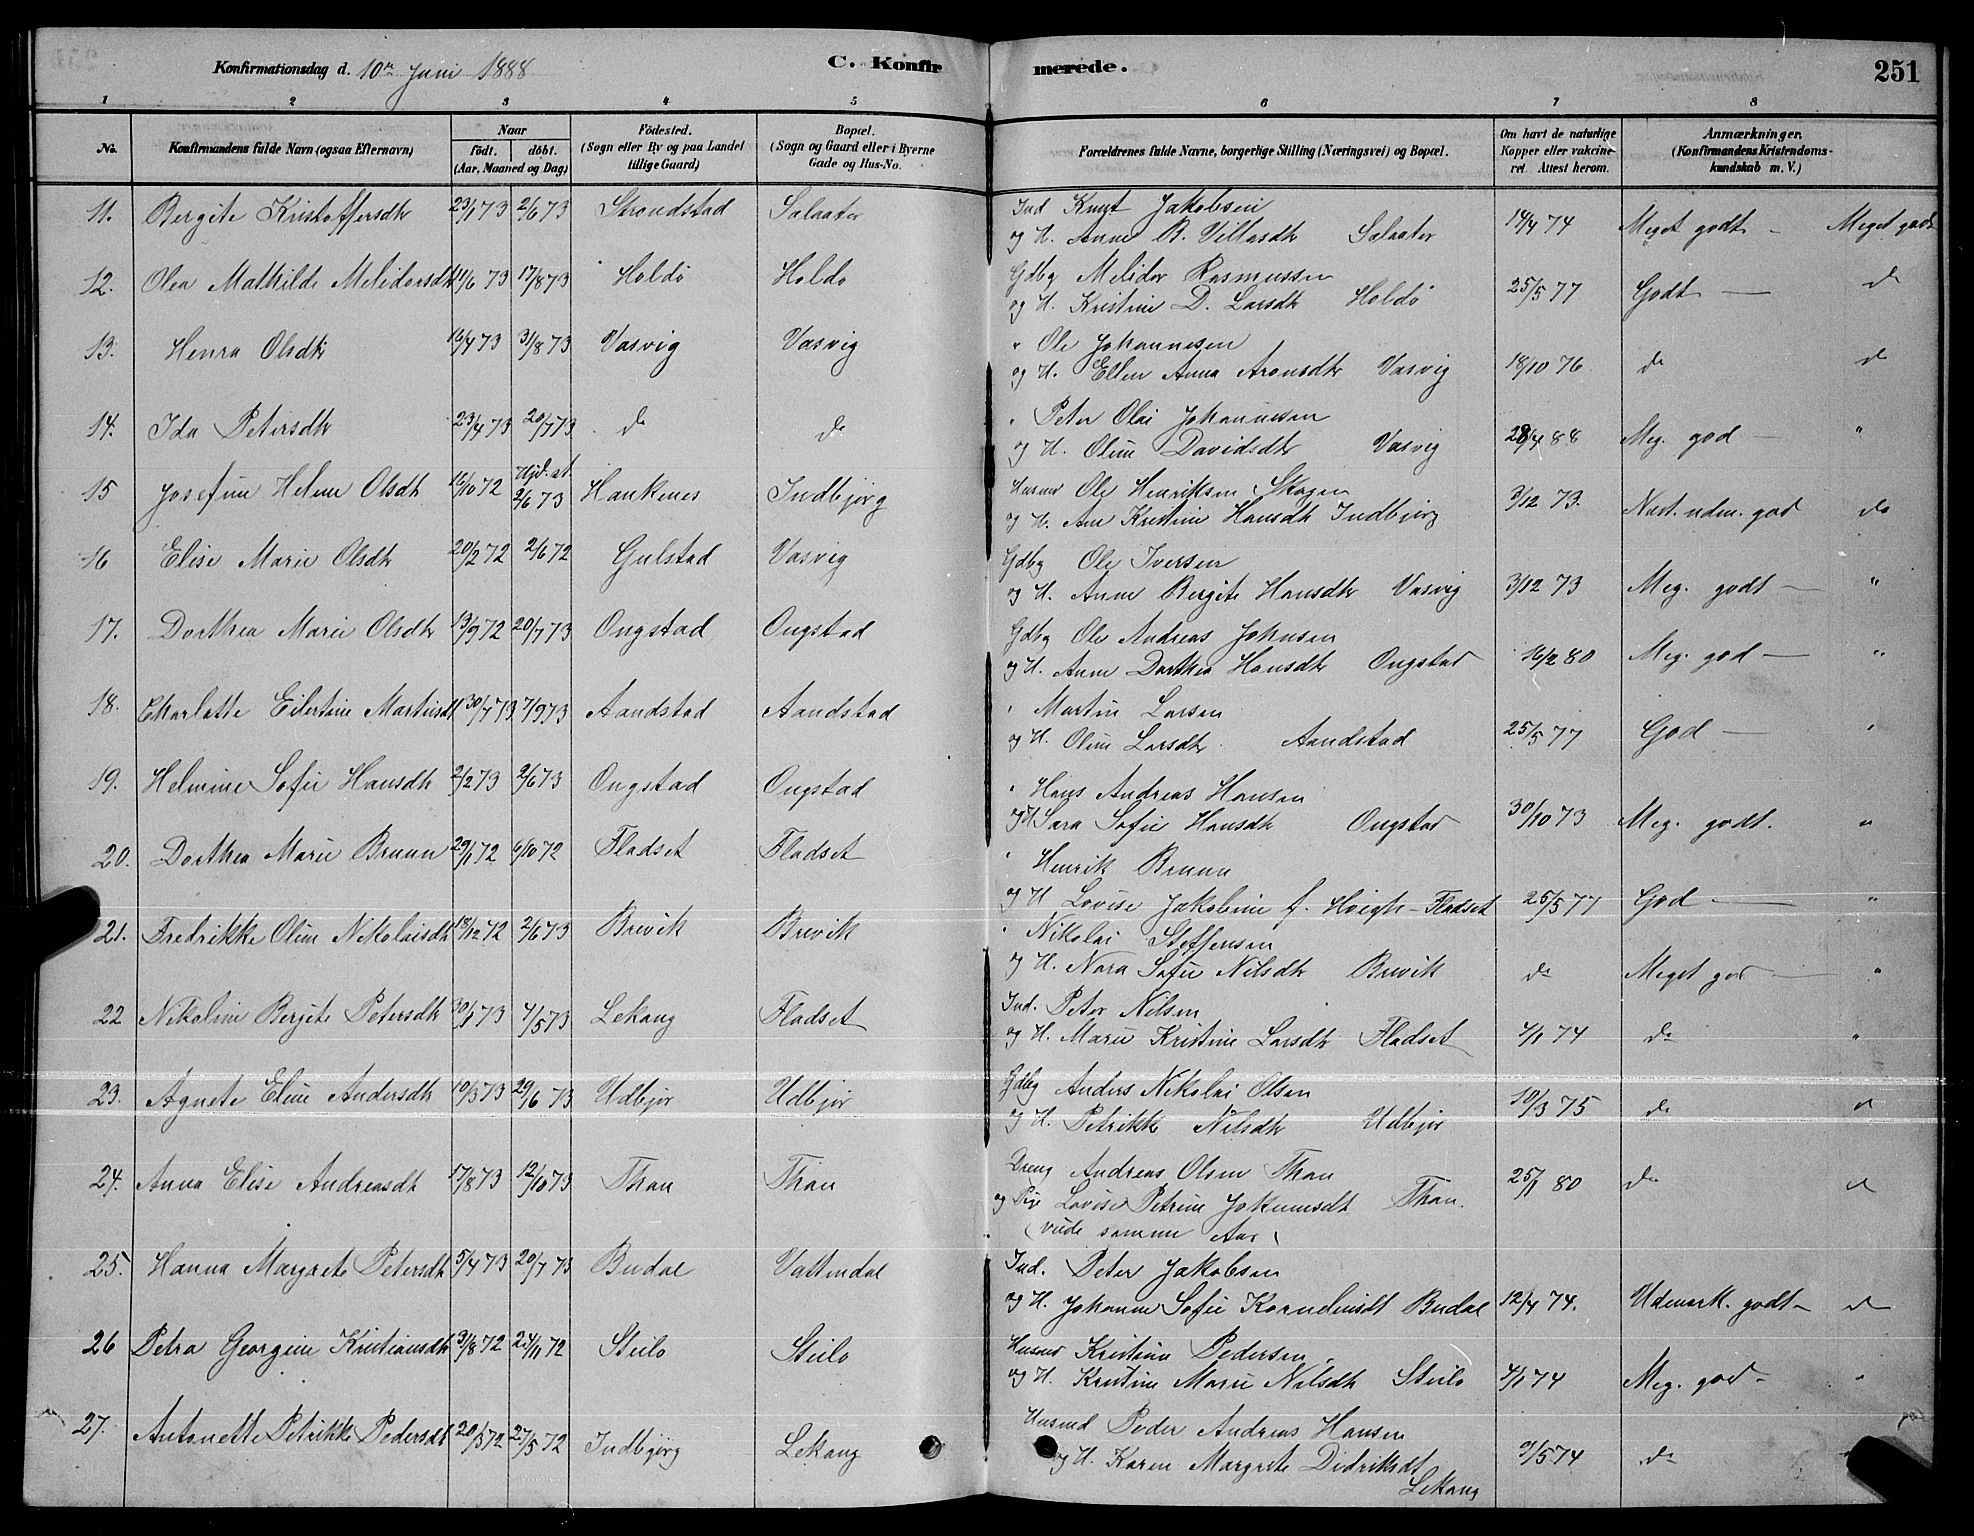 Konfirmationsdag d. 10de Juni 1888 C. Konfirmerede. 251
1 2 3 4 5 6 7 8
No. Konfirmandens fulde Navn (ogsaa Efternavn) Naar født. døbt. (Aar, Maaned og Dag) Födested. (Sogn eller By og paa Landet tillige Gaard) Bopæl. (Sogn og Gaard eller i Byerne Gade og Hus-No. Forældrenes fulde Navne, borgerlige Stilling (Næringsvei) og Bopæl. Om havt de naturlige Kopper eller vakcineret. Attest herom. Anmærkninger. (Konfirmandens Kristendomskundskab m. V.)
11. Bergite Kristoffersdtr 23/1 73 2/6 73 Strondstad Salaater Ind Knut Jakobsen
og H. Anne B. Villasdtr Salaater 14/4 74 Meget godt - Meget godt
12. Olea Mathilde Melidorsdtr 11/6 73 17/8 73 Holdö Holdö Gdbg Melidor Rasmussen
og H. Kristine D. Larsdtr Holdö 25/5 77 Godt — do
13. Henra Olsdtr 16/4 73 31/8 73 Vasvig Vasvig " Ole Johannesen
og H. Ellen Anna Aronsdtr Vasvig 18/10 76 do do
14. Ida Petersdtr 23/4 73 20/7 73 do do " Peter Olai Johannesen
og H. Oline Davidsdtr Vasvig 28/4 88 Meg. god — "
15 Josefine Helene Olsdtr 16/10 72 Hjd. st. 2/6 73 Hankenes Indbjörg Husmd Ole Henriksen Skogen
og H. Ane Kristine Hansdtr Indbjörg 3/12 73. Næst. udm. god do
16 Elise Marie Olsdtr 20/2 72 2/6 72 Gulstad Vasvig Gdbg Ole Iversen
og H. Anne Bergite Hansdtr Vasvig 3/12 73 Meg. godt — "
17. Dorthea Marie Olsdtr 13/9 72 20/7 73 Ongstad Ongstad Gdbg Ole Andreas Johnsen
og H. Anne Dorthea Hansdtr Ongstad 16/2 80 Meg. god — "
18. Charlotte Eilertine Martinsdtr 30/7 73 7/9 73 Aandstad Aandstad " Martin Larsen
og H. Oline Larsdtr Aandstad 25/5 77 God — "
19. Helmine Sofie Hansdtr 2/2 73 2/6 73 Ongstad Ongstad " Hans Andreas Hansen
og H Sara Sofie Hansdtr Ongstad 30/10 73 Meg. godt. "
20. Dorthea Marie Bruun 29/1 72 6/10 72 Fladset Fladset " Henrik Bruun
og H Lovise Jakobine f. Hveigh - Fladset 25/5 77 God — "
21. Fredrikke Oline Nikolaisdtr 18/12 72 2/6 73 Brevik Brevik " Nikolai Steffensen
og H. Nora Sofie Nilsdtr Brevik do Meget god — "
22 Nikoline Bergete Petersdtr 30/1 73 4/5 73 Lekang Fladset Ind. Peter Nilsen
og H. Marie Kristine Larsdtr Fladset 4/1 74 do "
23. Agnete Eline Andersdtr 10/3 73 29/6 73 Udbjör Udbjör Gdbg Anders Nikolai Olsen
og H. Petrikke Nilsdtr Udbjör 10/3 75 do do
24. Anna Elise Andreasdtr 17/8 73 12/10 73 Thon Thon Dreng Andreas Olsen Thon
og Pige Lovise Petrine Johannesdtr Thon. 25/1 80 do do
25. Hanna Margrete Petersdtr 5/4 73 20/7 73 Budal Vattendal Ind. Peter Jakobsen
og H. Johanne Sofie Korneliusdtr Budal 12/4 74. Udmærk. godt — do
26 Petra Georgine Kristiansdtr 31/8 72 24/11 72 Steilo Steilo Husmd Kristian Pedersen
og H. Kristine Marie Nilsdtr Steilo 4/1 74 Meg. god - "
27. Antonette Petrikke Pedersdtr 20/1 72 27/5 72 Indbjörg Lekang Husmd Peder Andreas Hansen
og H. Karen Margrete Didriksdtr
Lekang 9/5 74 do